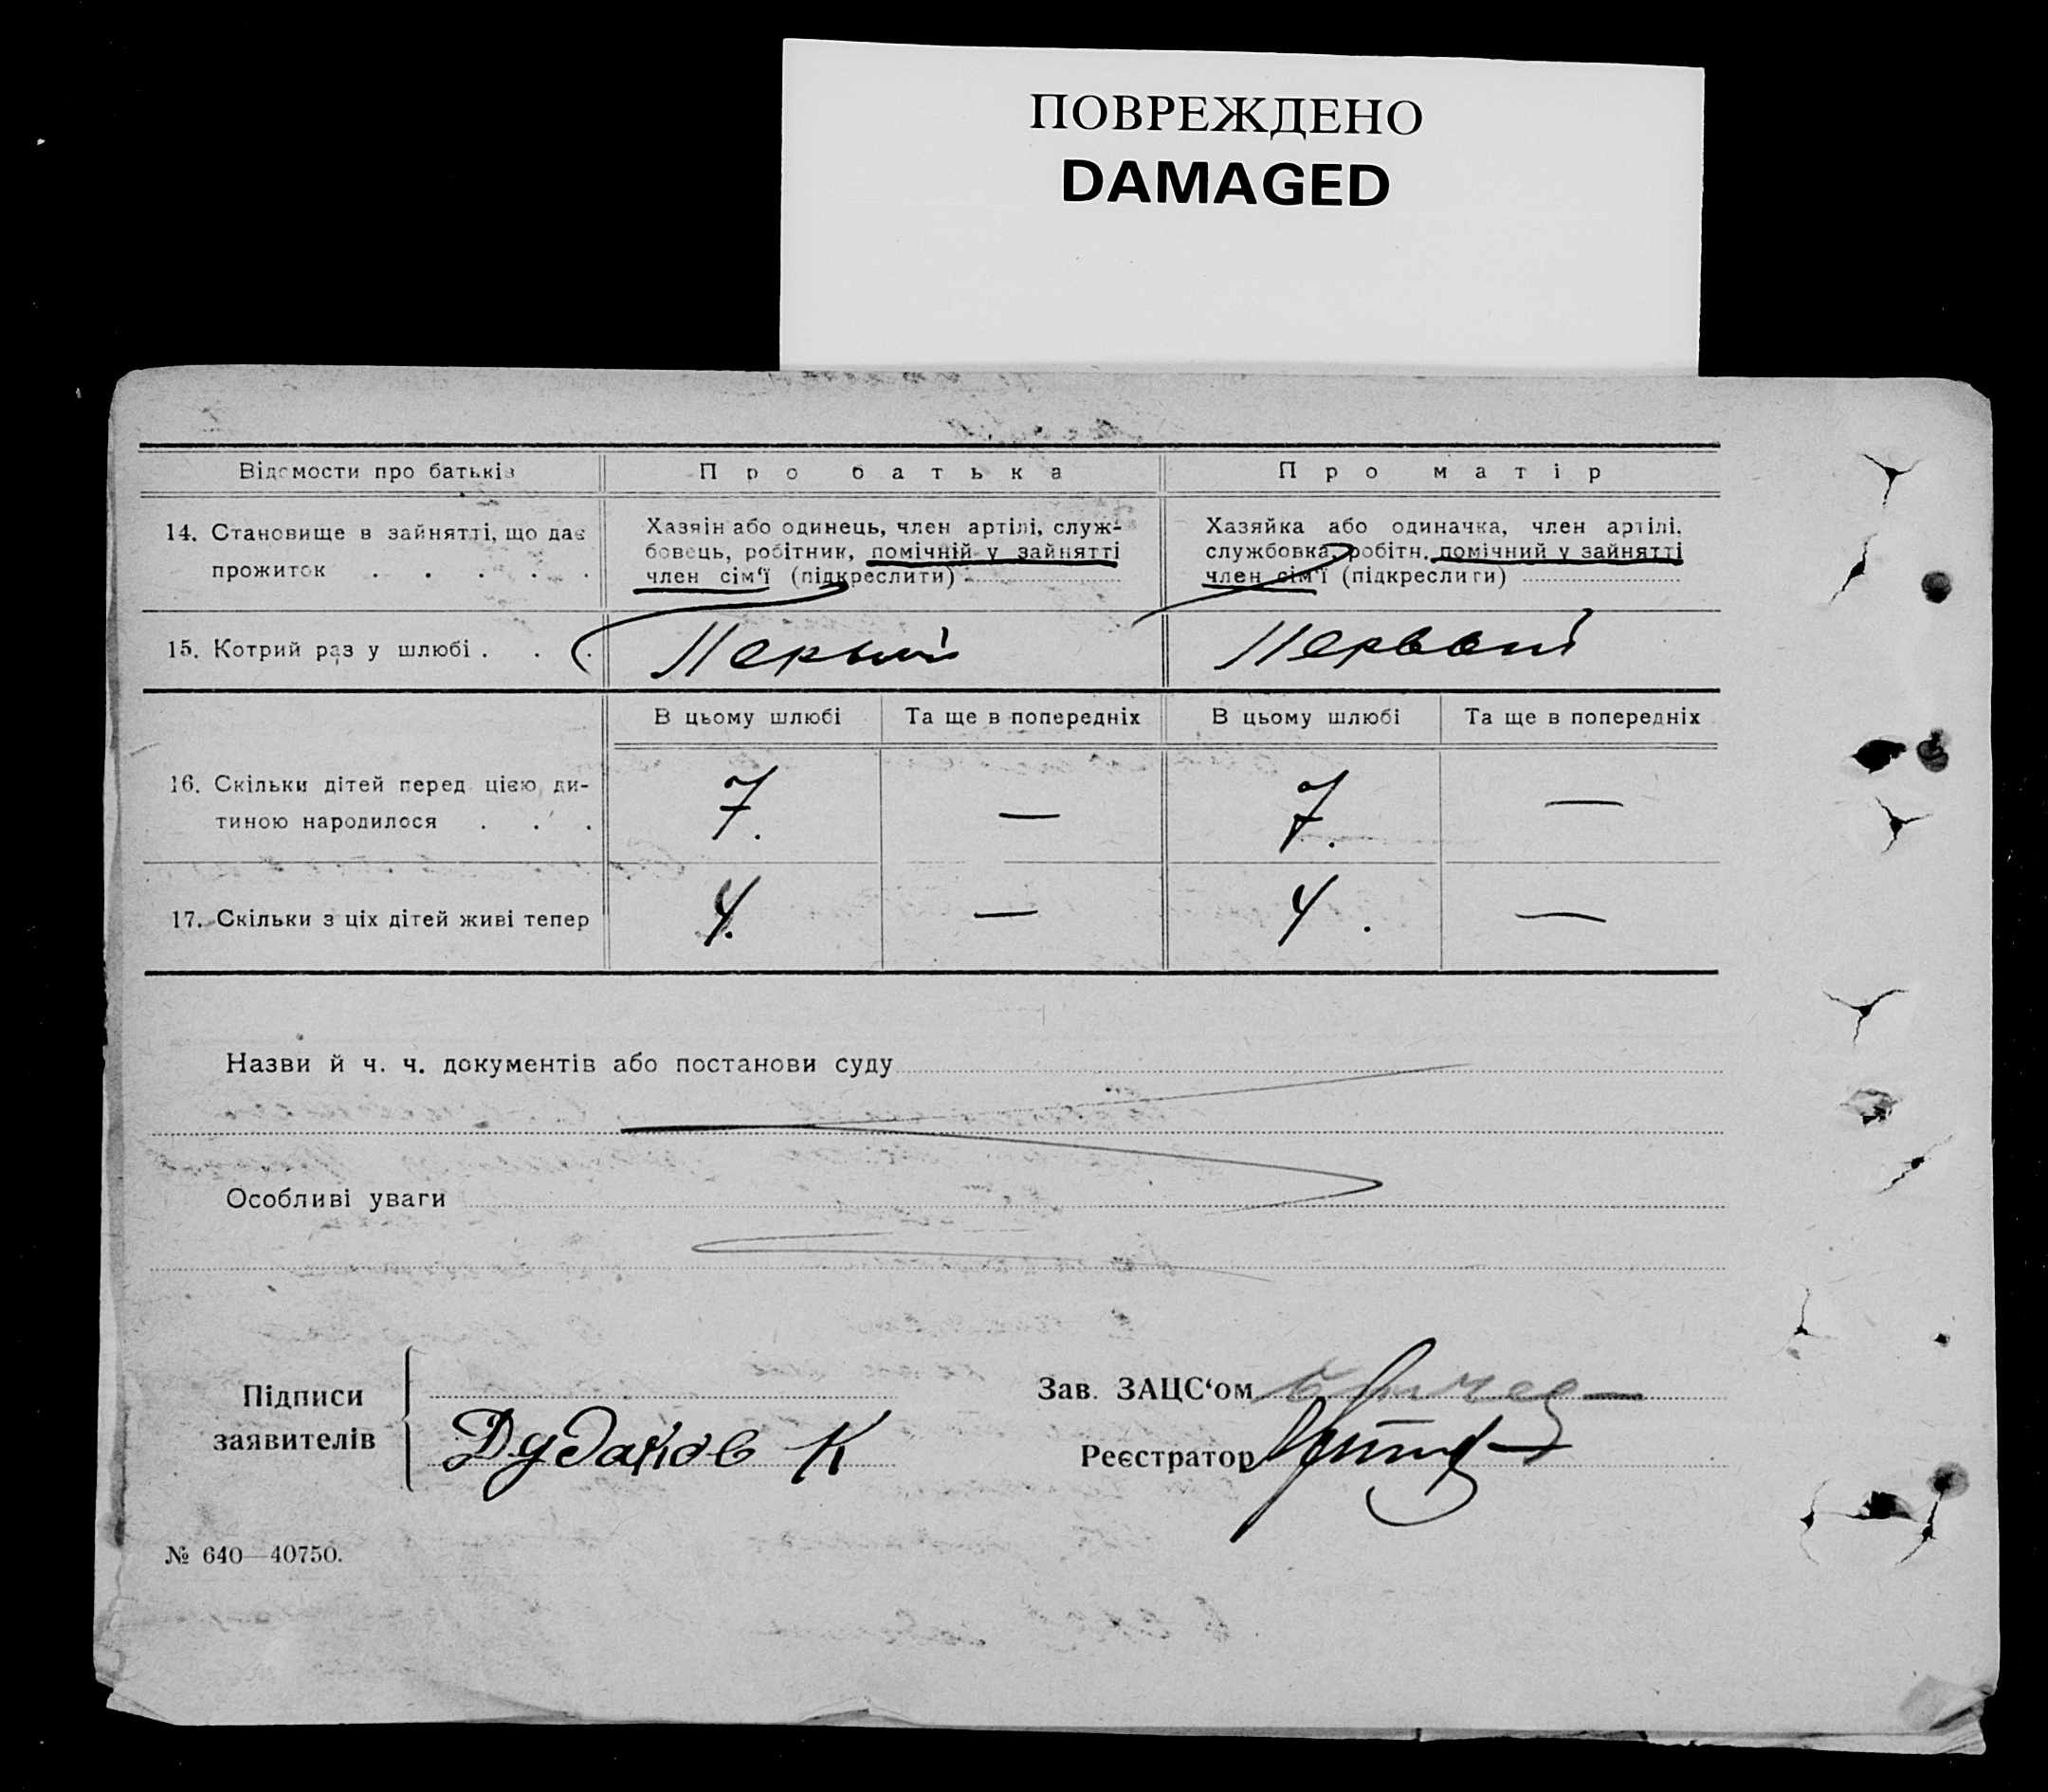 ПОВРЕЖДЕНО
DAMAGED
Відомости про батьків
Про батька
Про матір
14. Становище в зайнятті, що дає
прожиток . . . . .
Хазяїн або одинець, член артілі, служ-
бовець, робітник, помічній у зайнятті
член сім'ї (підкреслити)
Хазяйка або одиначка, член артілі,
службовка, робітн. помічний у зайнятті
член сім'ї (підкреслити)
15. Котрий раз у шлюбі . . .
Первый
Первый
В цьому шлюбі
Та ще в попередніх
В цьому шлюбі
Та ще в попередніх
16. Скільки дітей перед цією ди-
тиною народилося . . .
7. — 7. —
17. Скільки з ціх дітей живі тепер
4. — 4. —
Назви й ч. ч. документів або постанови суду
Особливі уваги
Підписи
заявителів
Дудаков К
Зав. ЗАЦС'ом
Реєстратор
№ 640—40750.